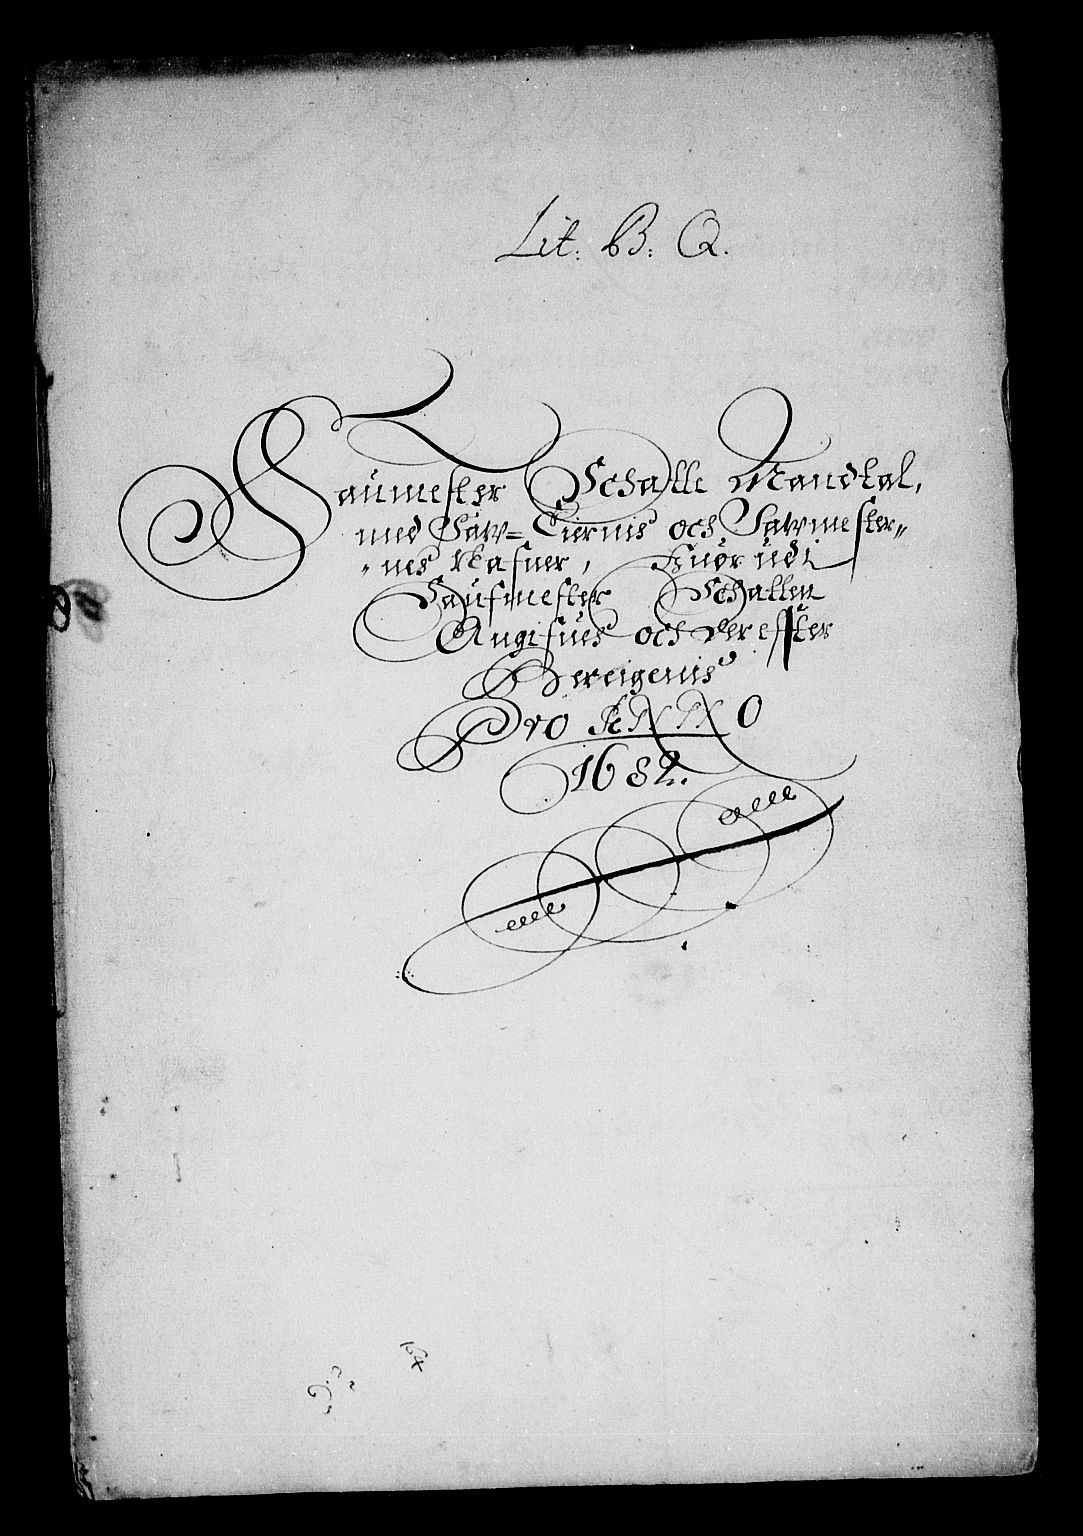 Lit. B: Q.
Saumester Schatte Mandtal,
med Saw= Eiernis och Sawmester=
=nes Nafner, Huor udi
Saufmester Schatten
Angifues och der effter
Bereigenis
Pro ANNO
1682.
164